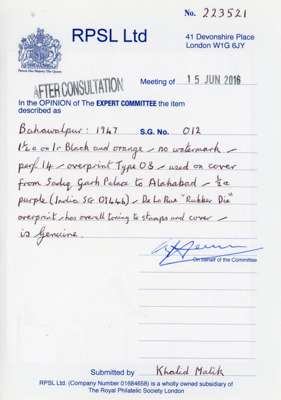 No. 223521
RPSL Ltd
41 Devonshire Place
London W1G 6JY
AFTER CONSULTATION
Meeting of 15 JUN 2016
In the OPINION of The EXPERT COMMITTEE the item
described as
Bahawalpur: 1947 S.G. No. 012
1½a on 1r Black and orange - no watermark -
perf. 14 - overprint Type 08 - used on cover
from Sadiq Garh Palace to Allahabad - ½a
purple (India SG O144b) - De La Rue "Rubber Die"
overprint - has overall toning to stamps and cover -
is Genuine.
On behalf of the Committee
Submitted by Khalid Malik
RPSL Ltd. (Company Number 01684658) is a wholly owned subsidiary of
The Royal Philatelic Society London